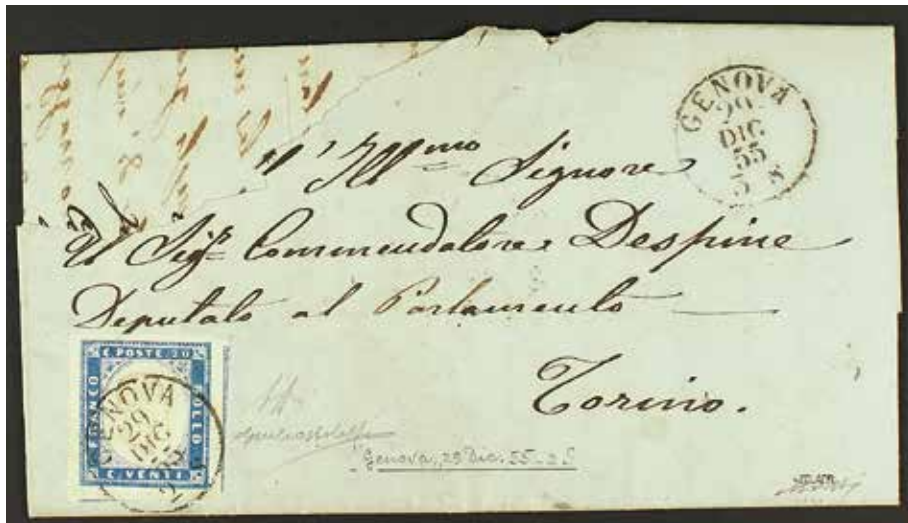 GENOVA
29
DIC
55
All'Ill.mo Signore
Il Sig.r Commendatore Despine
Deputato al Parlamento
Torino.
C. POSTE 20
FRANCO
BOLLO
C. VENTI
GENOVA
29
DIC
55
Genova, 29 Dic. 55 - 2S